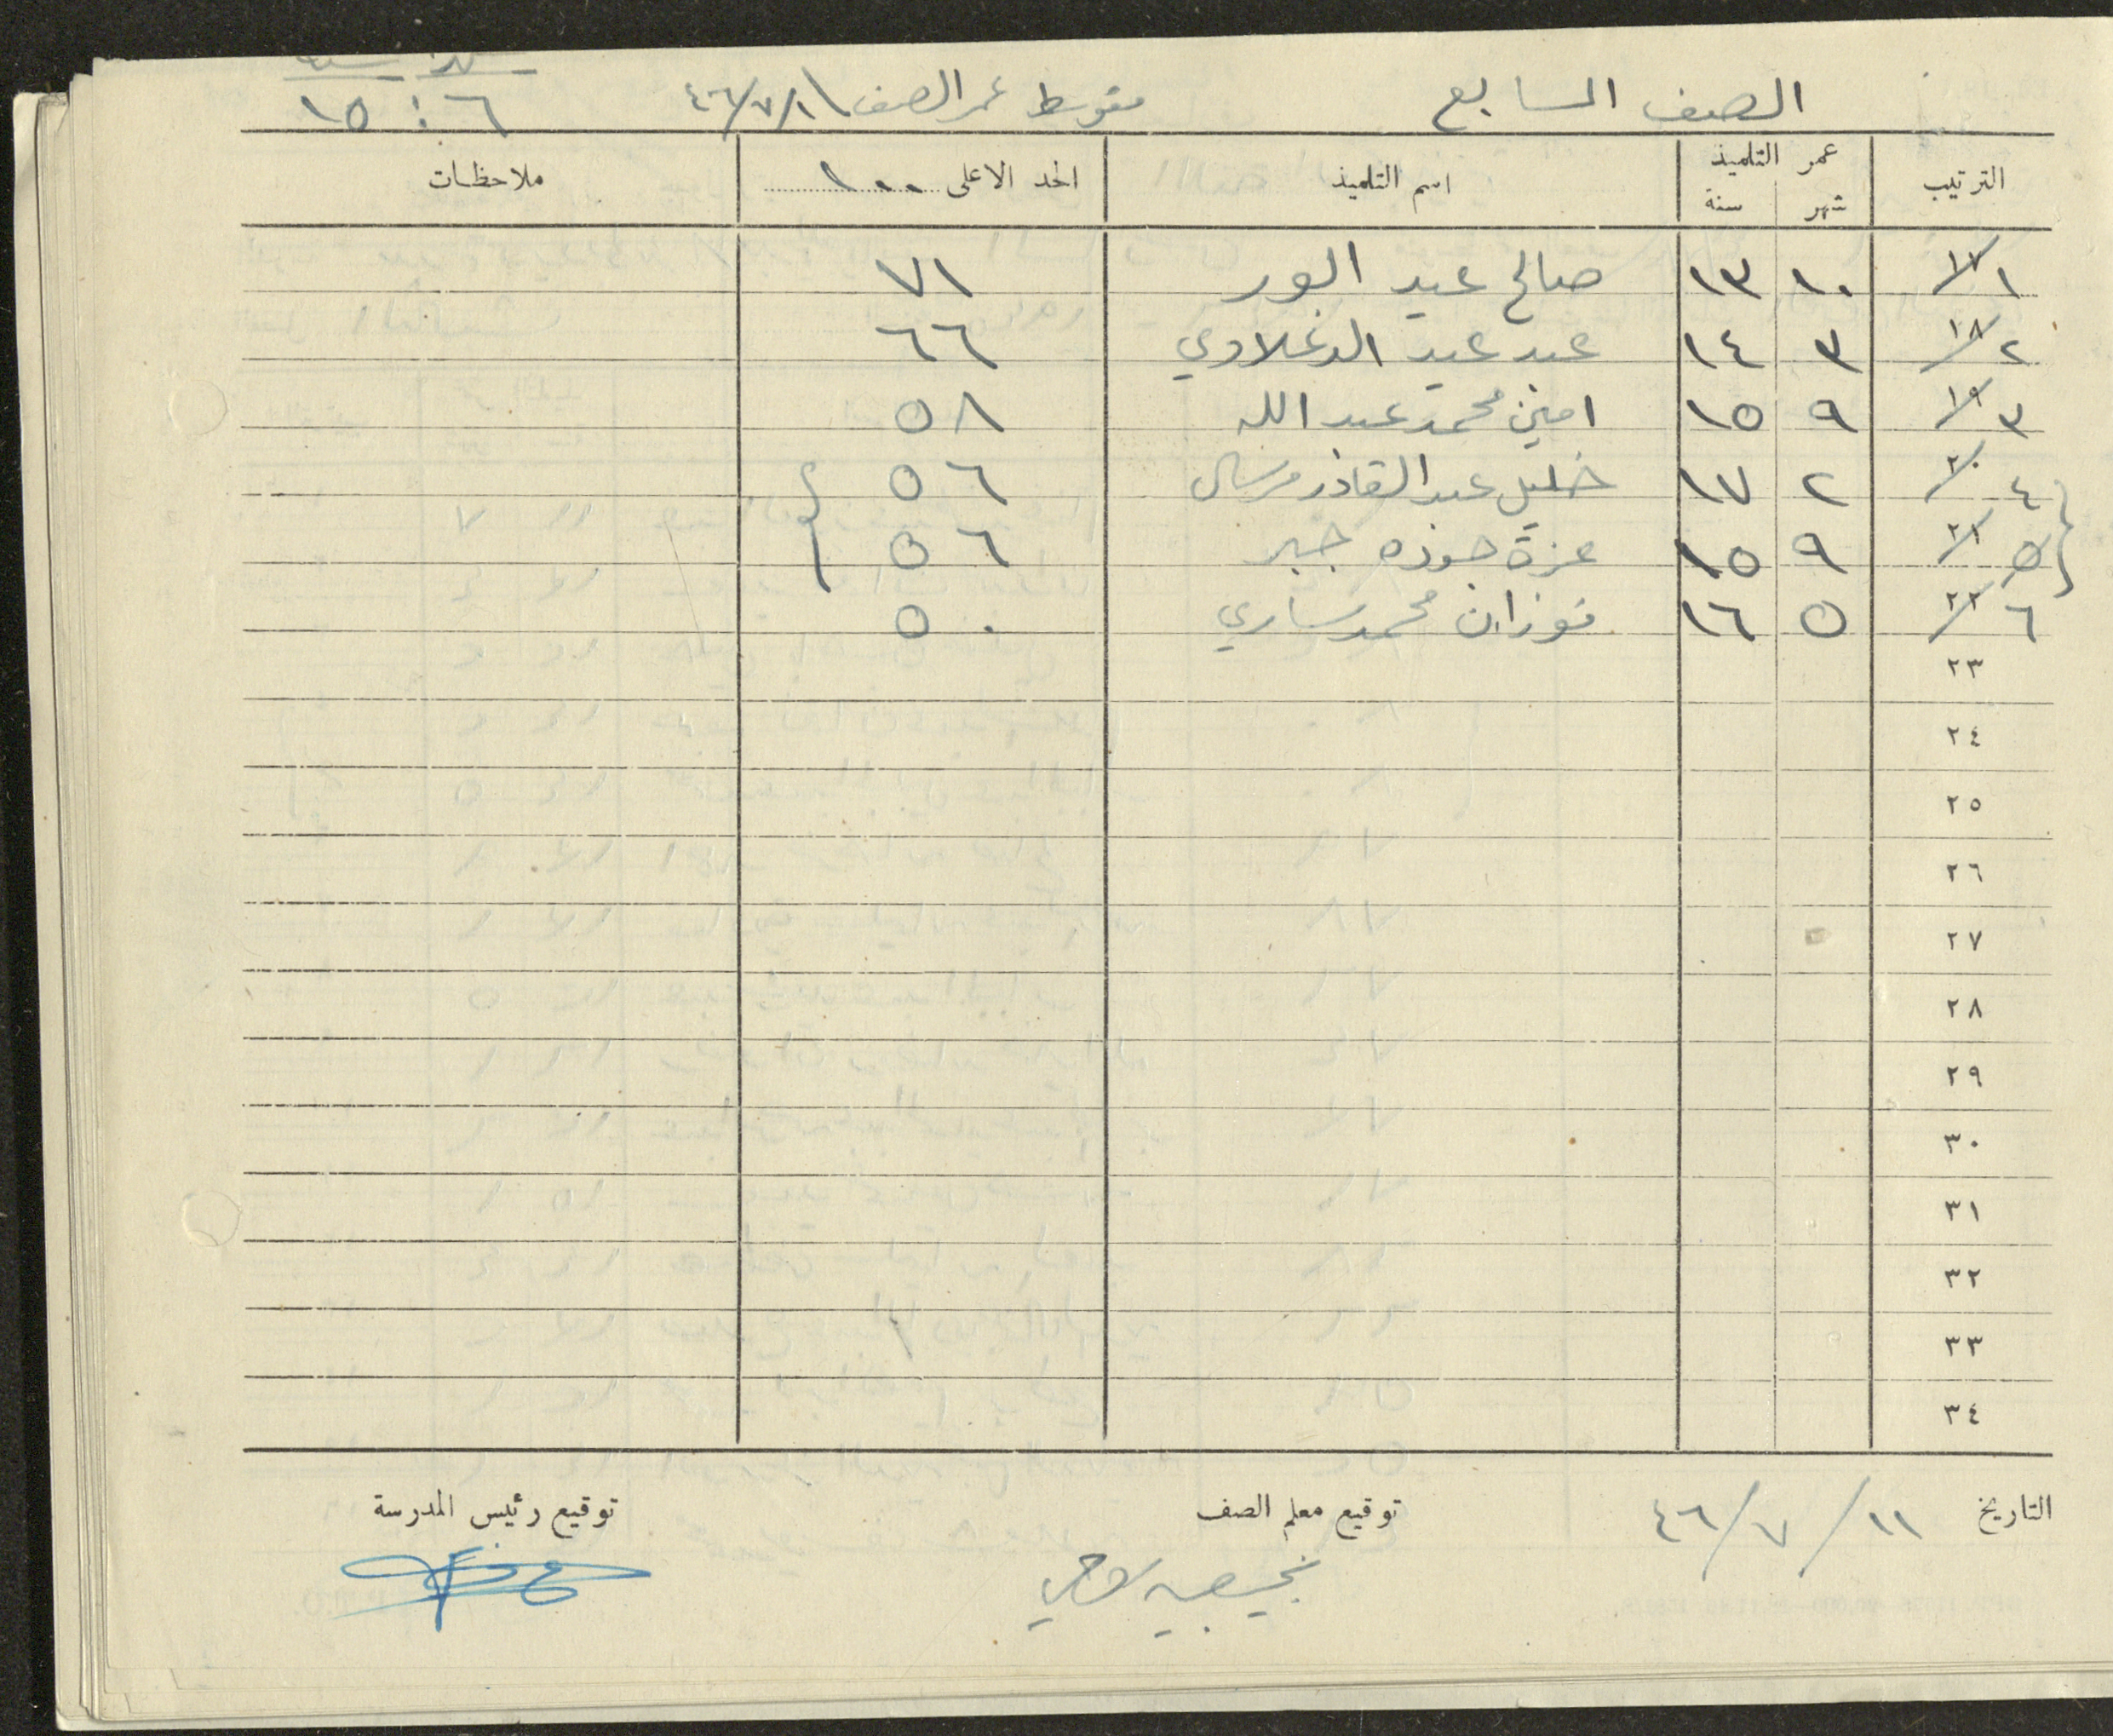 شهر سنة
الصف السابع متوسط عمر الصف ١/٧/٤٦ ٦ : ١٥
الترتيب عمر التلميذ اسم التلميذ الحد الاعلى ١٠٠ ملاحظات
شهر سنة
١ ١٧ ١٠ ١٣ صالح عبد ٧١
٢ ١٨ ٣ ١٤ عبد عيد الدعلاوي ٦٦
٣ ١٩ ٩ ١٥ امين محمد عبد الله ٥٨
٤ ٢٠ ٢ ١٧ خليل عبد القادر ٥٦
٥ ٢١ ٩ ١٥ عزة جوده جبر ٥٦
٦ ٢٢ ٥ ١٦ فوزان محمد ساري ٥٠
٢٣
٢٤
٢٥
٢٦
٢٧
٢٨
٢٩
٣٠
٣١
٣٢
٣٣
٣٤
التاريخ ١١/٧/٤٦ توقيع معلم الصف توقيع رئيس المدرسة